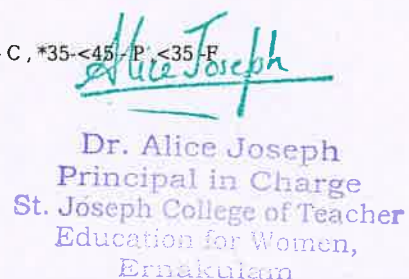 C , *35-<45 - P, <35 -F
Alice Joseph
Dr. Alice Joseph
Principal in Charge
St. Joseph College of Teacher
Education for Women,
Ernakulam